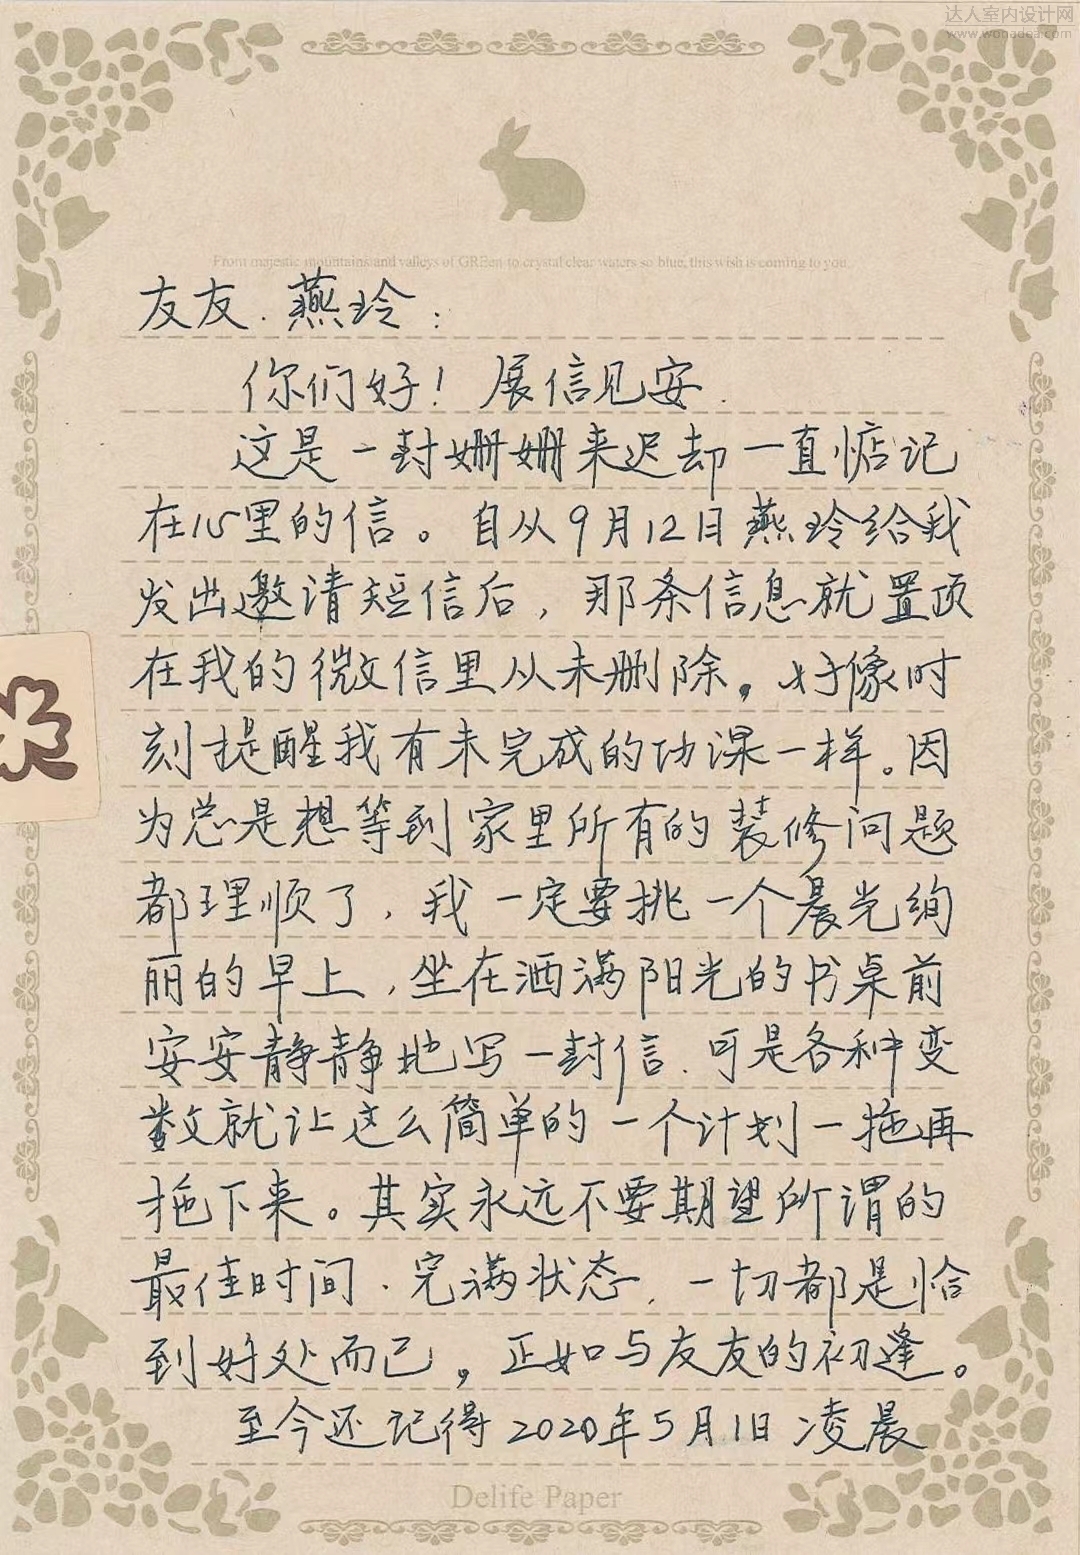 达人室内设计网
www.wonadea.com
From majestic mountains and valleys of GREen to crystal clear waters so blue, this wish is coming to you.
友友、燕玲：
你们好！展信见安.
这是一封姗姗来迟却一直惦记
在心里的信。自从9月12日燕玲给我
发出邀请短信后，那条信息就置顶
在我的微信里从未删除。好像时
刻提醒我有未完成的功课一样。因
为总是想等到家里所有的装修问题
都理顺了，我一定要挑一个晨光绚
丽的早上，坐在洒满阳光的书桌前
安安静静地写一封信.可是各种变
数就让这么简单的一个计划一拖再
拖下来。其实永远不要期望所谓的
最佳时间、完满状态，一切都是恰
到好处而已，正如与友友的初逢。
至今还记得2020年5月1日凌晨
Delife Paper